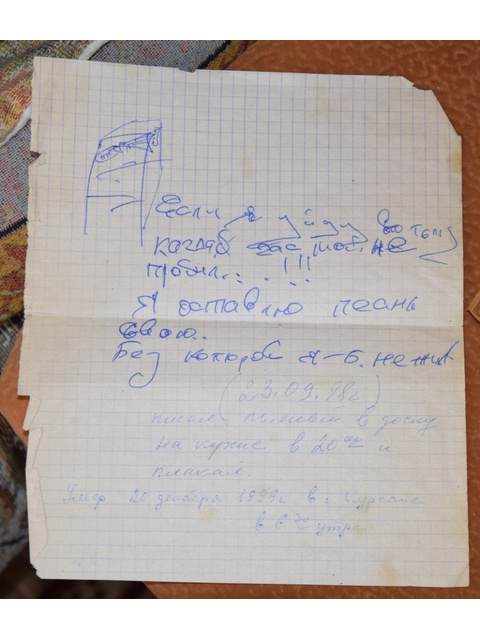 Если я уйду во тьму
когда б час мой не
пробил... !!!
Я оставлю песнь
свою.
Без которой я-б. не жив
(23.09.78г)
писал пьяным в доску
на кухне в 20 и
плакал.
Умер 20 декабря 1999г в г. Кургане
в 6 утра.